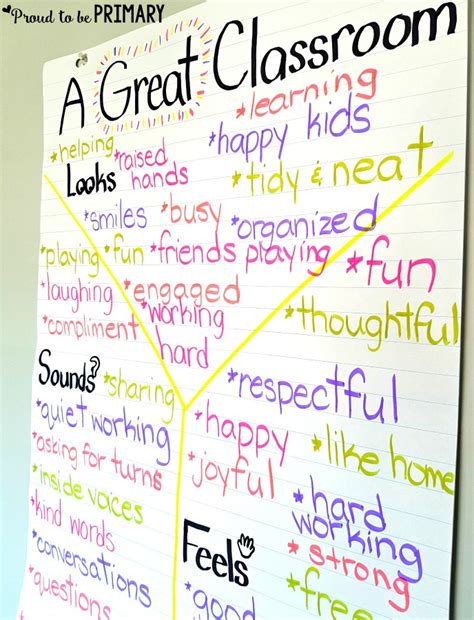 Proud to be PRIMARY
A Great Classroom
Looks
*helping
*raised hands
*happy kids
*learning
*tidy & neat
*smiles
*busy
*organized
*playing
*fun
*friends playing
*laughing
*engaged
*compliment
*working
hard
Sounds
*sharing
*quiet working
*asking for turns
*inside voices
*kind words
*conversations
*questions
*fun
*thoughtful
*respectful
*happy
*like home
*joyful
*hard
working
Feels
*strong
*good
*free